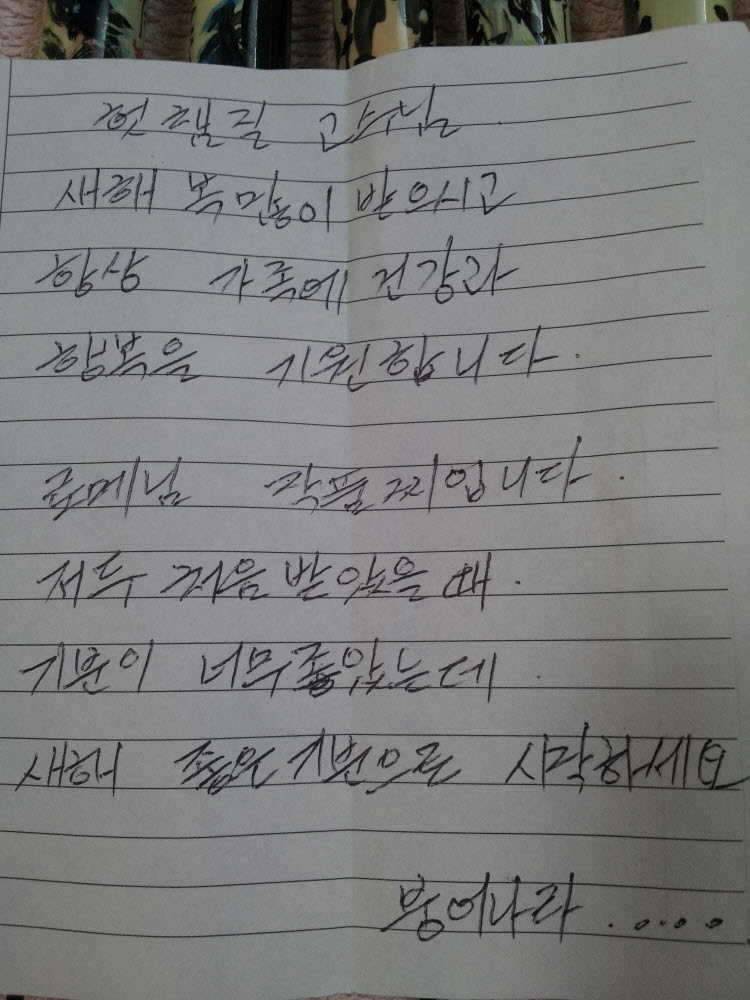 헛챔질 고수님.
새해 복 많이 받으시고
항상 가족에 건강과
행복을 기원합니다.
로메님 작품 찌입니다.
저두 처음 받았을때.
기분이 너무 좋았는데.
새해 좋은 기분으로 시작하세요
붕어나라.....